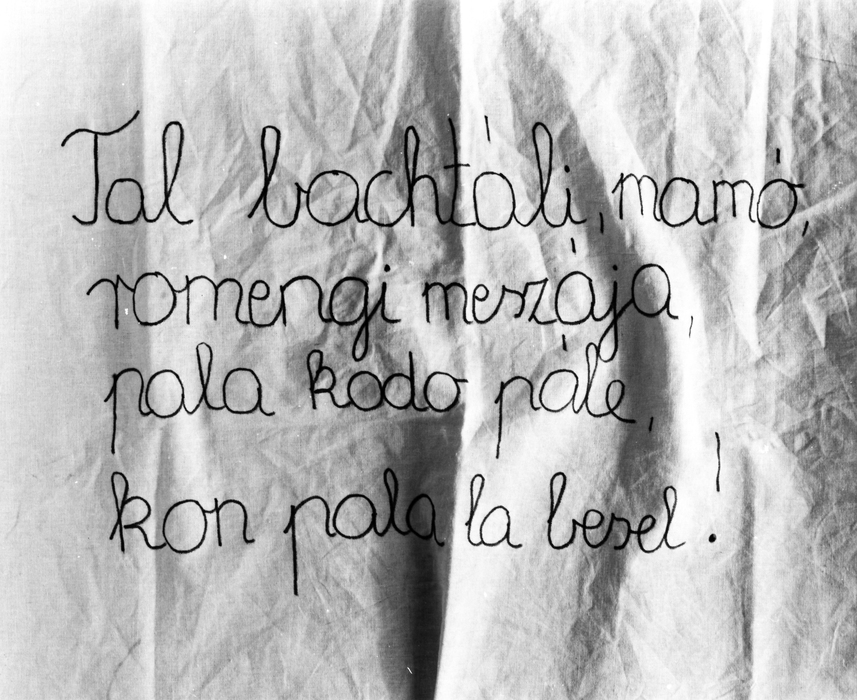 Tal bachtáli, mamó,
romengi meszája,
pala kodo pále,
kon pala la besel!